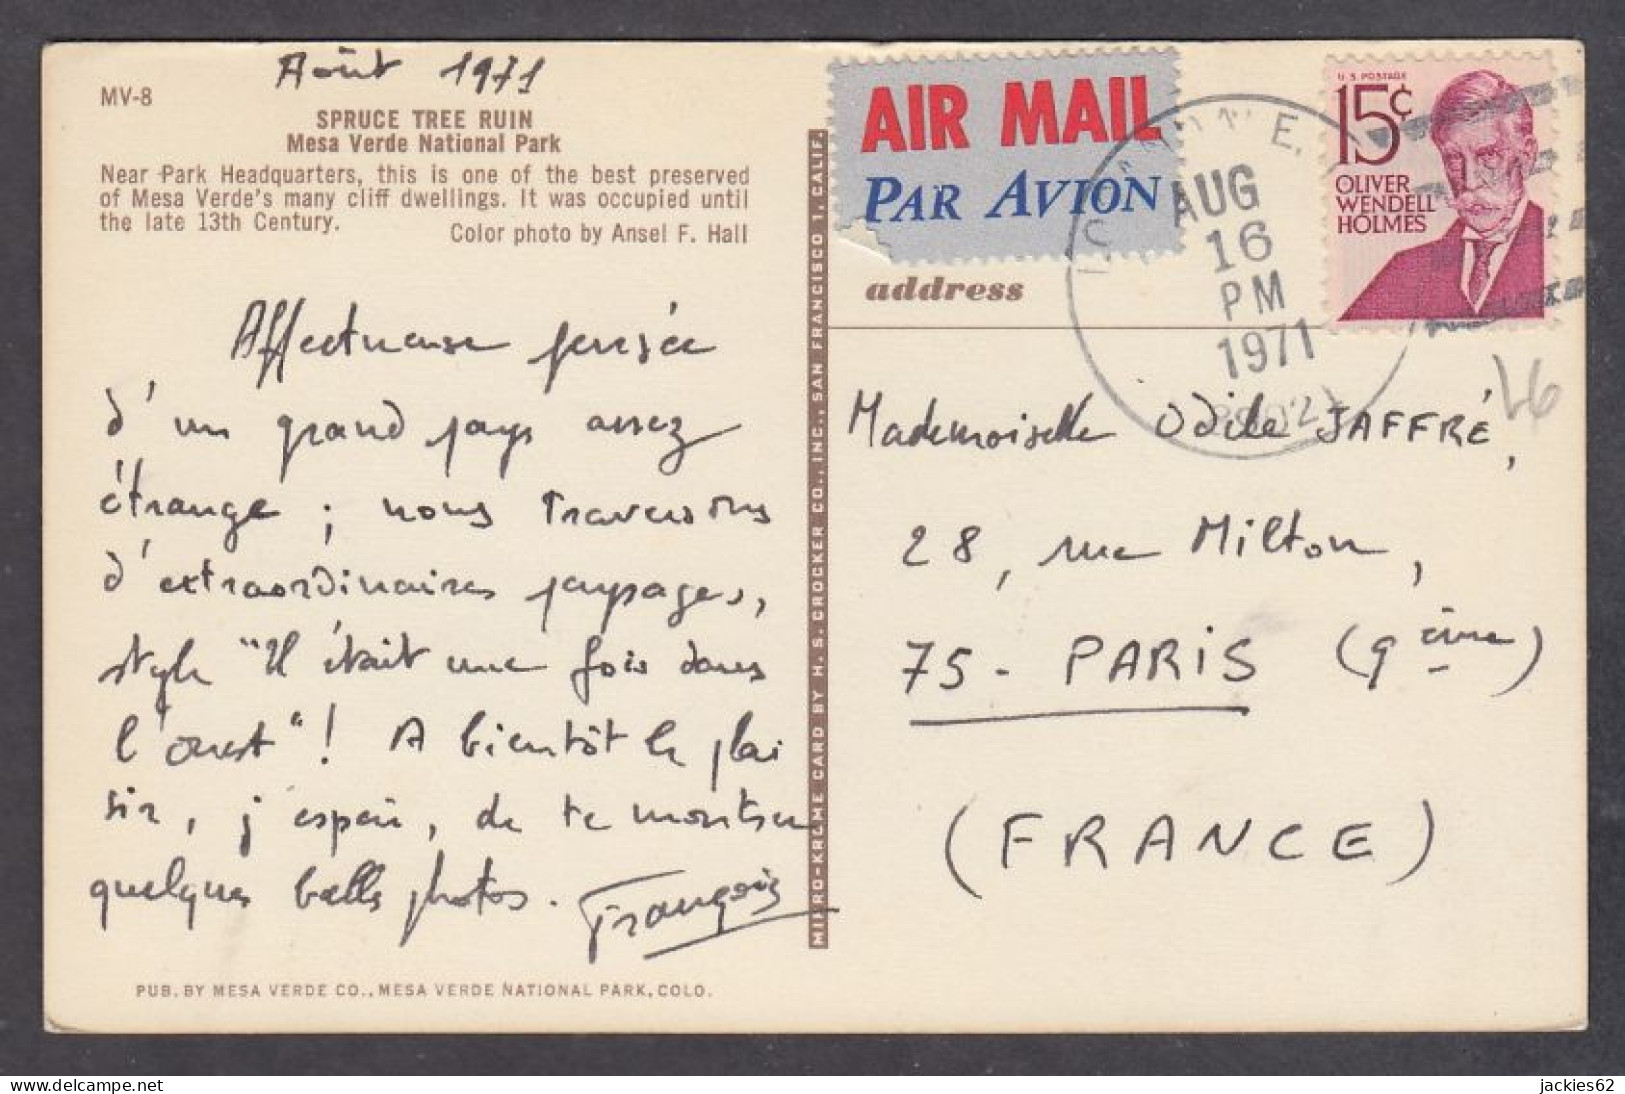 Août 1971
MV-8
SPRUCE TREE RUIN
Mesa Verde National Park
Near Park Headquarters, this is one of the best preserved
of Mesa Verde's many cliff dwellings. It was occupied until
the late 13th Century.
Color photo by Ansel F. Hall
Affectueuse pensée
d'un grand pays assez
étrange ; nous traversons
d'extraordinaires paysages,
style "Il était une fois dans
l'ouest"! A bientôt le plai
sir, j'espère, de te montrer
quelques belles photos. François
PUB. BY MESA VERDE CO., MESA VERDE NATIONAL PARK, COLO.
MIKRO-KROME CARD BY H. S. CROCKER CO., INC., SAN FRANCISCO 1, CALIF.
AIR MAIL
PAR AVION
address
AUG
16
PM
1971
U.S. POSTAGE
15¢
OLIVER
WENDELL
HOLMES
Mademoiselle Odile JAFFRÉ,
28, rue Milton,
75 - PARIS (9ème)
(FRANCE)
jackies62